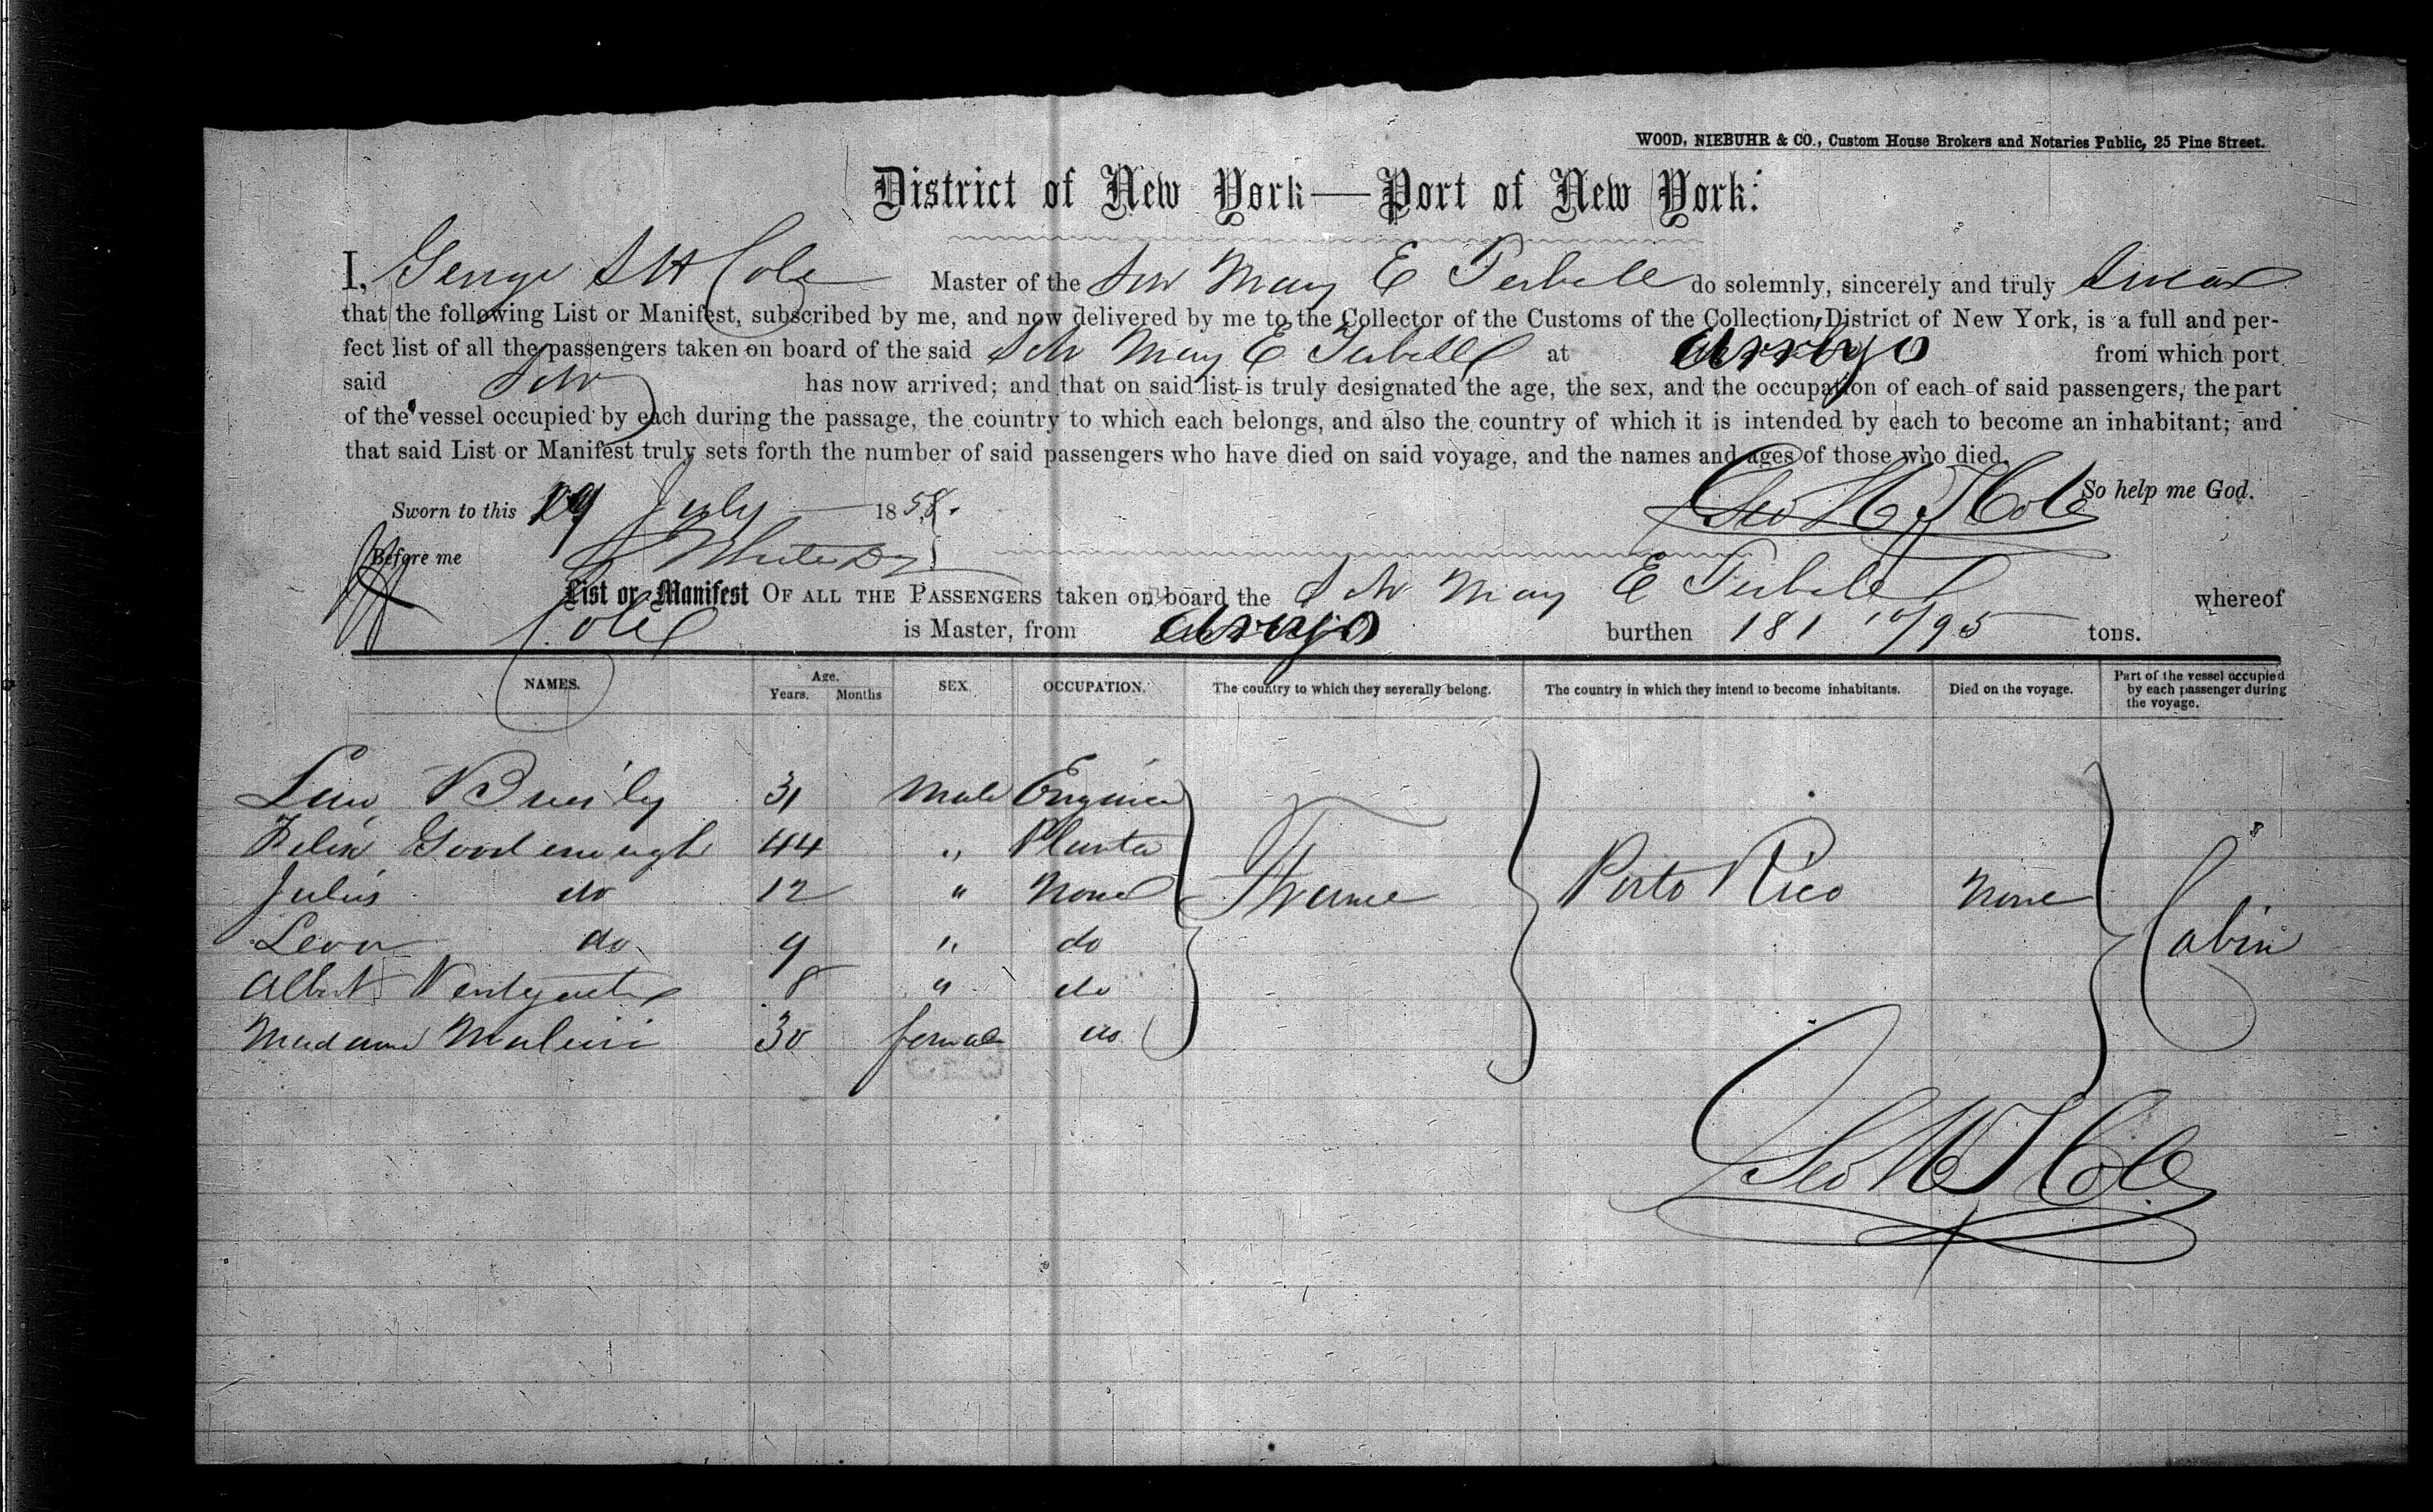 WOOD, NIEBUHR & CO., Custom House Brokers and Notaries Public, 25 Pine Street.
District of New York—Port of New York:
I, George S H Cole Master of the Schr Mary E Terbell do solemnly, sincerely and truly Swear
that the following List or Manifest, subscribed by me, and now delivered by me to the Collector of the Customs of the Collection District of New York, is a full and per-
fect list of all the passengers taken on board of the said Schr Mary E Terbell at Arroyo from which port
said Schr has now arrived; and that on said list is truly designated the age, the sex, and the occupation of each of said passengers, the part
of the vessel occupied by each during the passage, the country to which each belongs, and also the country of which it is intended by each to become an inhabitant; and
that said List or Manifest truly sets forth the number of said passengers who have died on said voyage, and the names and ages of those who died.
So help me God.
Sworn to this 19 July 1858. Geo H S Cole
Before me
List or Manifest OF ALL THE PASSENGERS taken on board the Schr Mary E Terbell whereof
Cole is Master, from Arroyo burthen 181 10/95 tons.
NAMES. Age. Years. Months SEX. OCCUPATION. The country to which they severally belong. The country in which they intend to become inhabitants. Died on the voyage. Part of the vessel occupied by each passenger during the voyage.
31 Male Engineer
Felix Goodenough 44 " Planter
Julius do 12 " None France Porto Rico None Cabin
Leon do 9 " do
Albert 8 " do
Madame 30 female do
Geo H S Cole